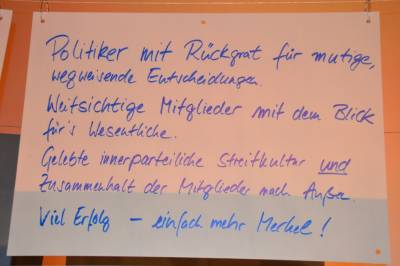 Politiker mit Rückgrat für mutige,
wegweisende Entscheidungen.
Weitsichtige Mitglieder mit dem Blick
für's Wesentliche.
Gelebte innerparteiliche Streitkultur und
Zusammenhalt der Mitglieder nach Außen.
Viel Erfolg – einfach mehr Merkel!